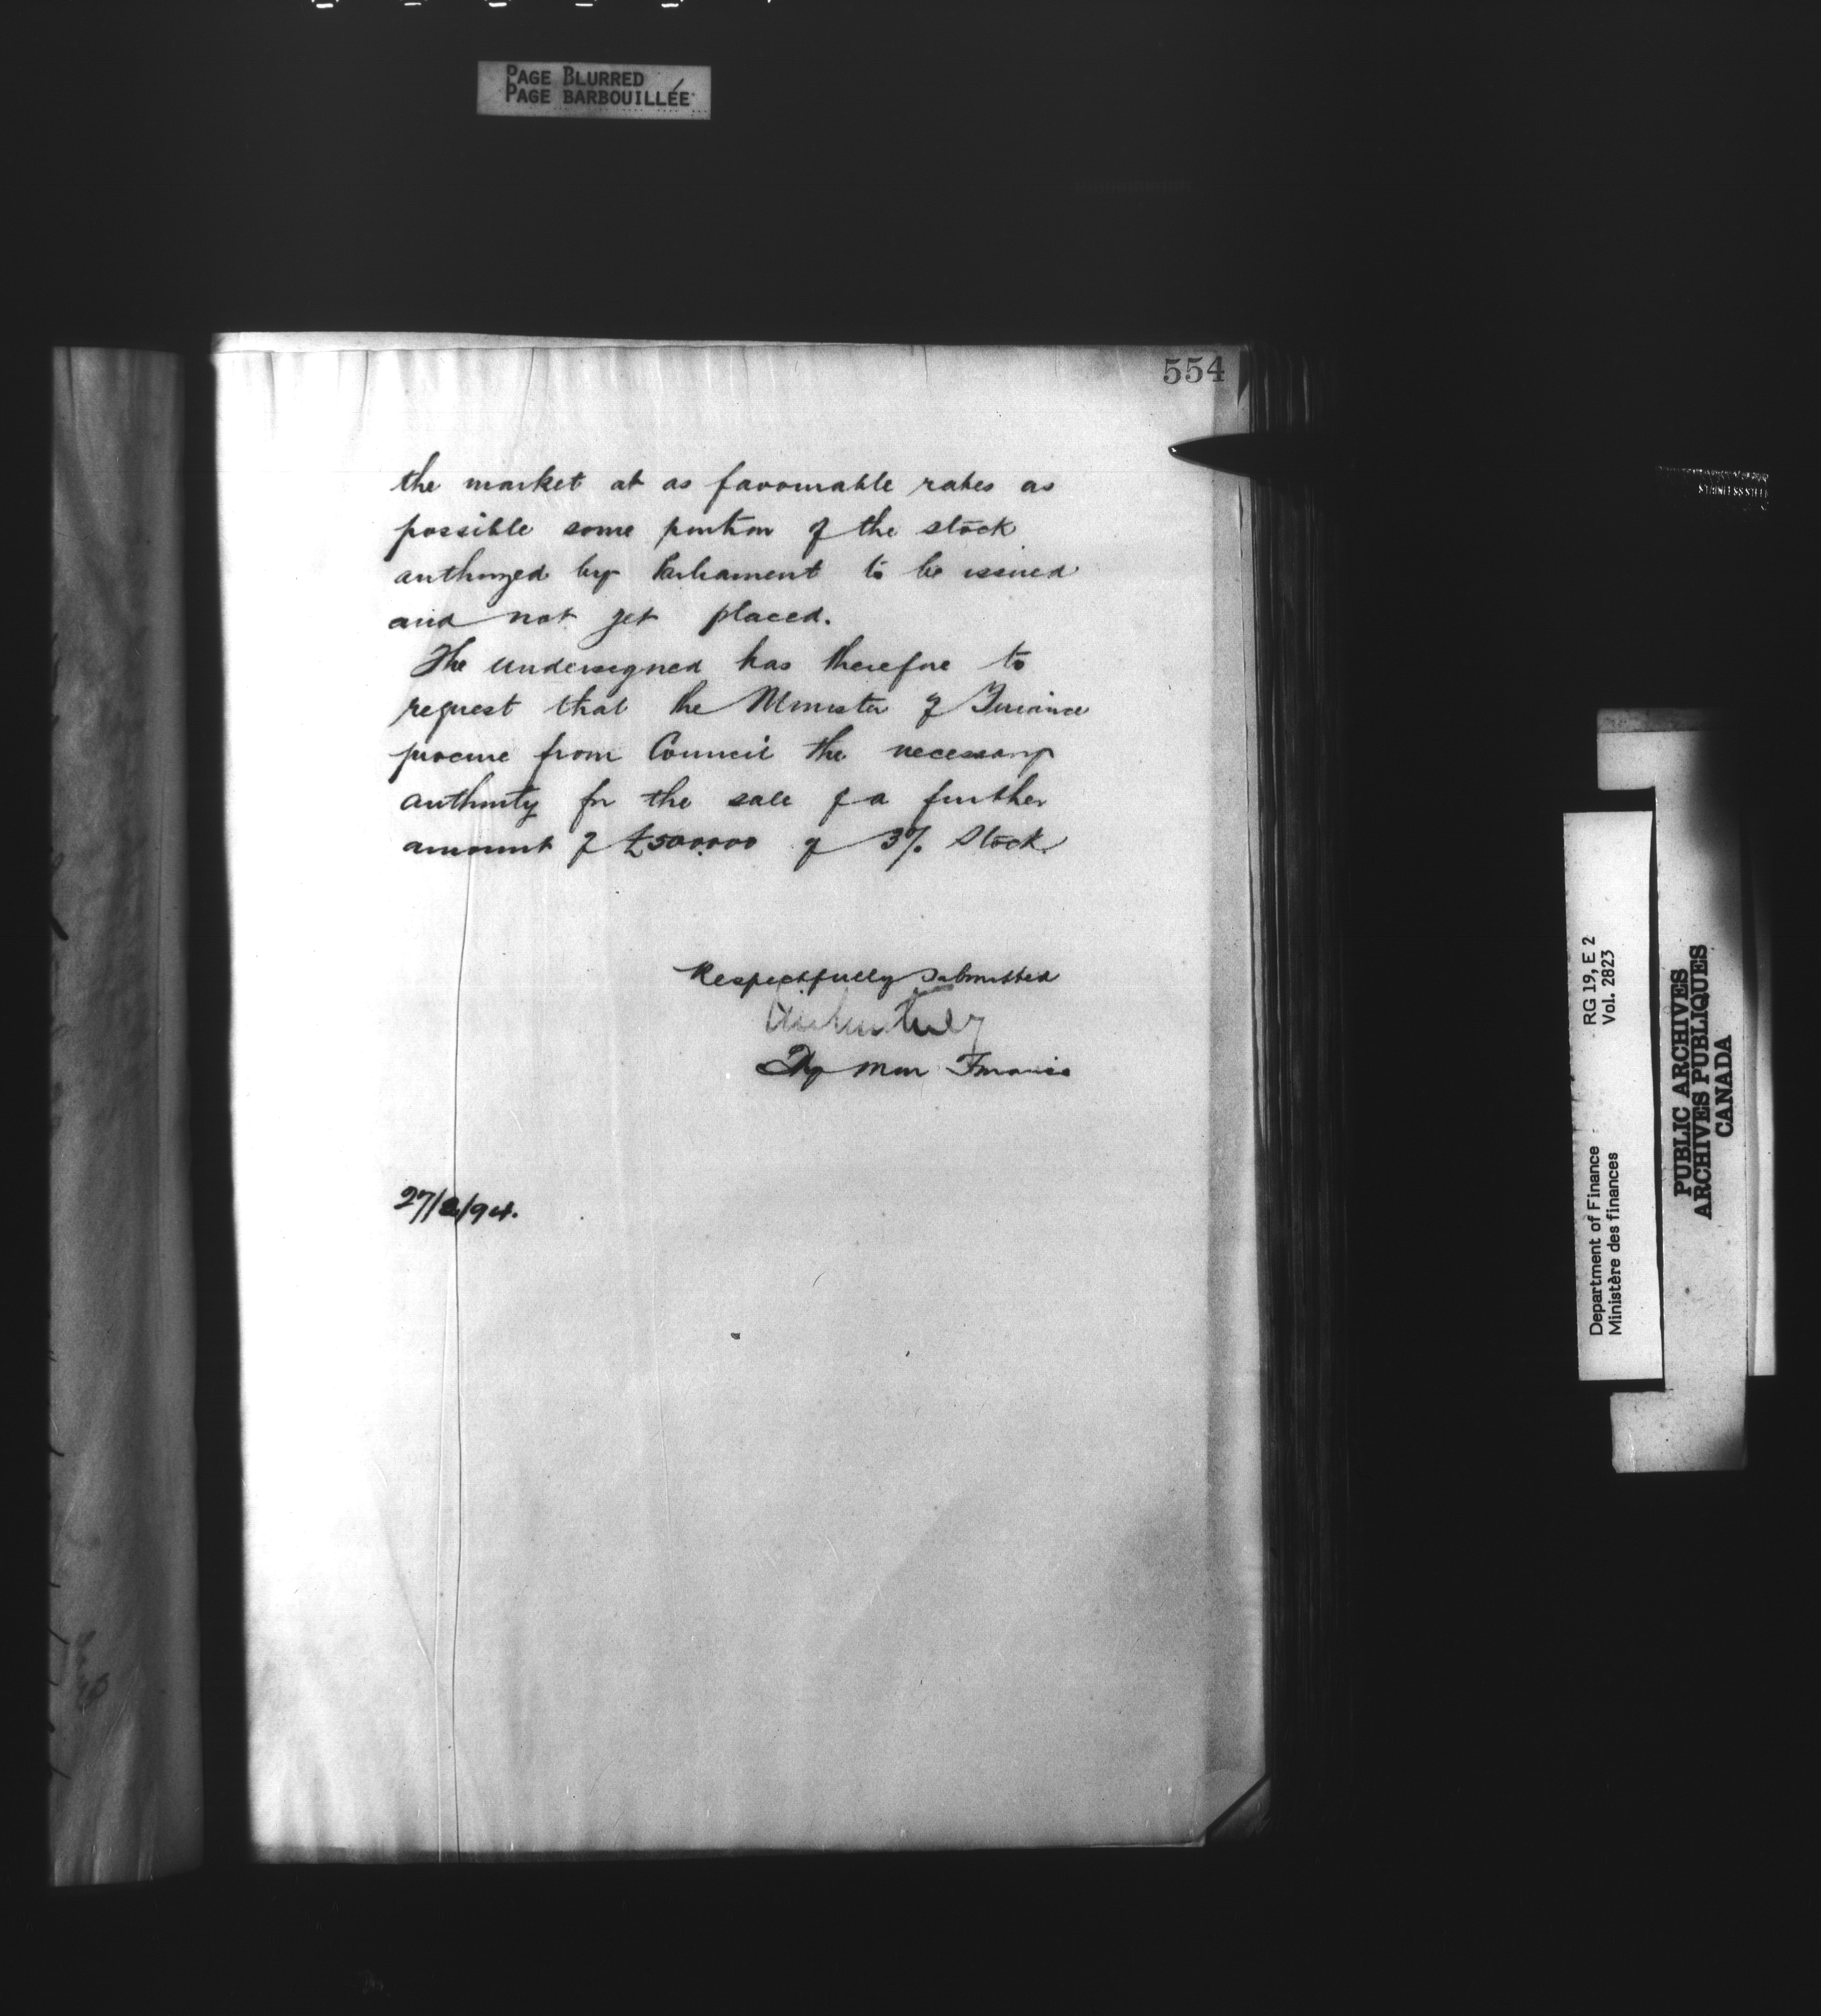 PAGE BLURRED
PAGE BARBOUILLÉE
554
the market at as favourable rates as
possible some portion of the stock
authorized by Parliament to be issued
and not yet placed.
The undersigned has therefore to
request that the Minister of Finance
procure from Council the necessary
authority for the sale of a further
amount of £500.000 of 3% Stock.
Respectfully submitted
Dep Min Finance
27/2/94.
Department of Finance RG 19, E 2
Ministère des finances Vol. 2823
PUBLIC ARCHIVES
ARCHIVES PUBLIQUES
CANADA